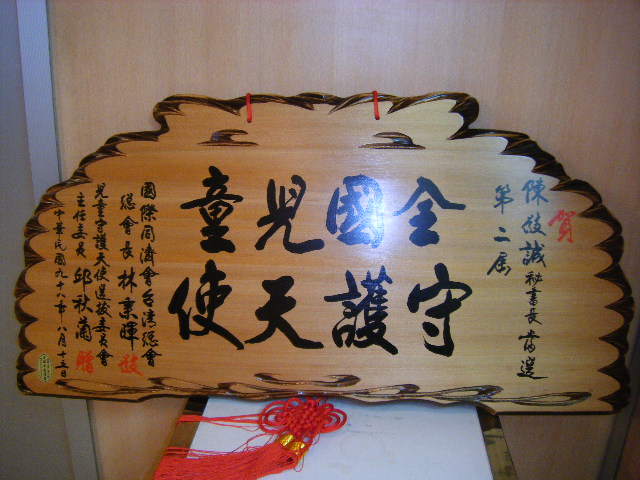 賀
陳啟誠秘書長當選
第二屆
全國兒童
守護天使
國際同濟會台灣總會
總會長林秉暉敬
兒童守護天使選拔委員會
主任委員邱秋蘭贈
中華民國九十八年八月十五日